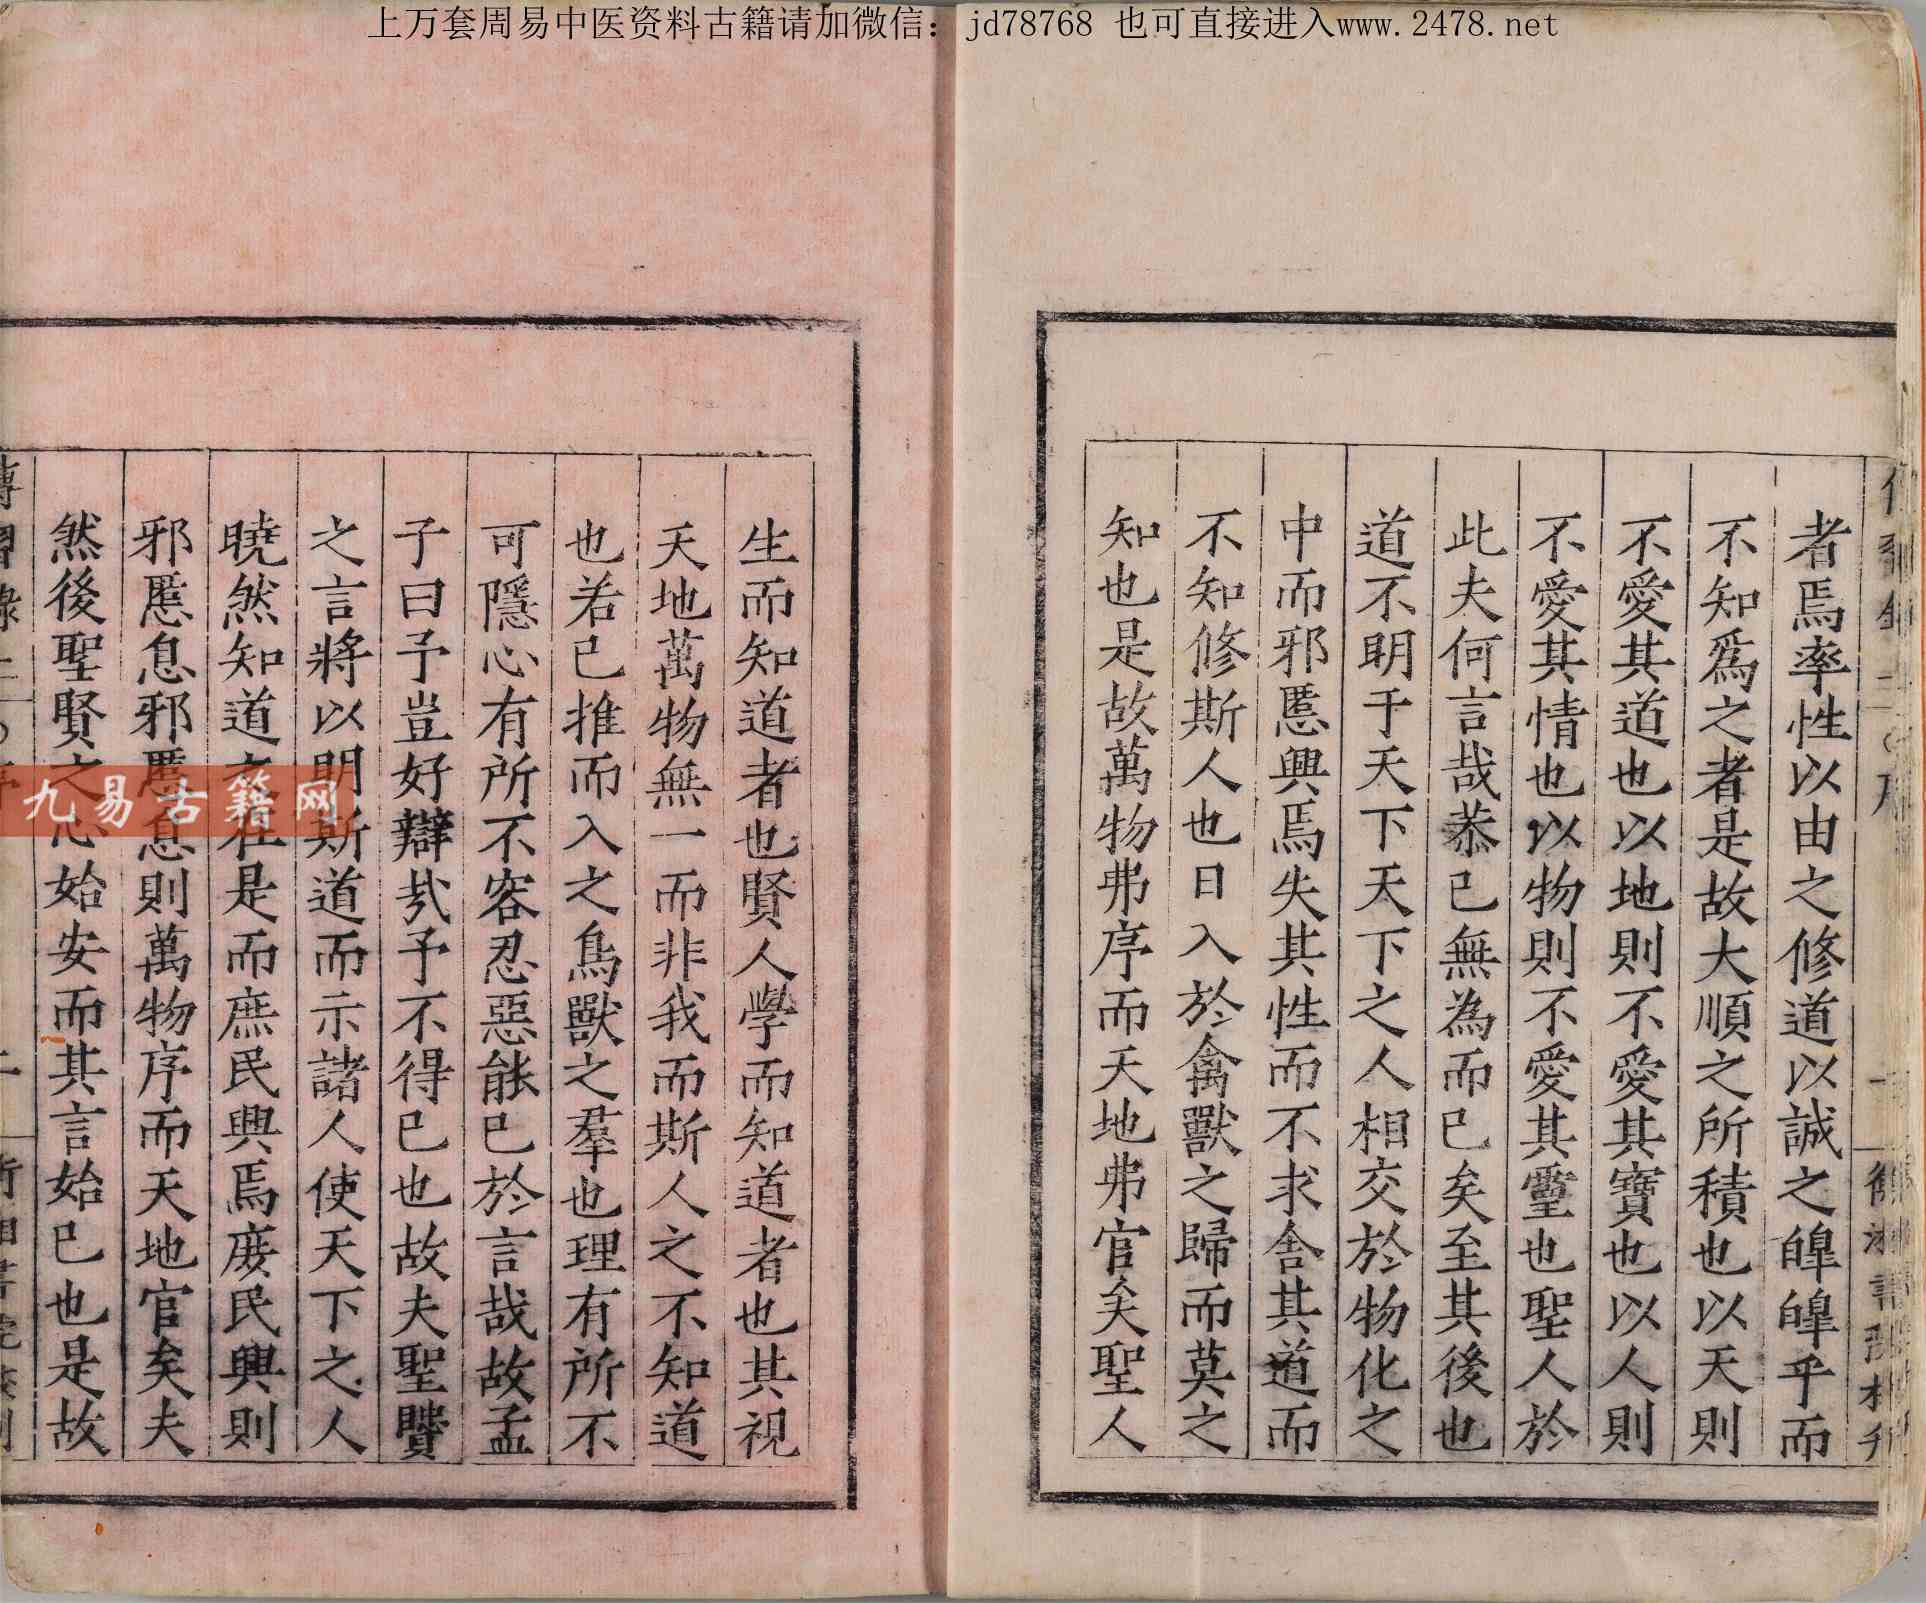 上万套周易中医资料古籍请加微信：jd78768 也可直接进入www.2478.net
者焉率性以由之修道以誠之皥皥乎而
不知爲之者是故大順之所積也以天則
不愛其道也以地則不愛其寶也以人則
不愛其情也以物則不愛其靈也聖人於
此夫何言哉恭己無為而已矣至其後也
道不明于天下天下之人相交於物化之
中而邪慝興焉失其性而不求舍其道而
不知修斯人也日入於禽獸之歸而莫之
知也是故萬物弗序而天地弗官矣聖人
生而知道者也賢人學而知道者也其視
天地萬物無一而非我而斯人之不知道
也若己推而入之鳥獸之羣也理有所不
可隱心有所不容忍惡能已於言哉故孟
子曰予豈好辯哉予不得已也故夫聖賢
之言將以明斯道而示諸人使天下之人
曉然知道之在是而庶民興焉庶民興則
邪慝息邪慝息則萬物序而天地官矣夫
然後聖賢之心始安而其言始已也是故
九易古籍网